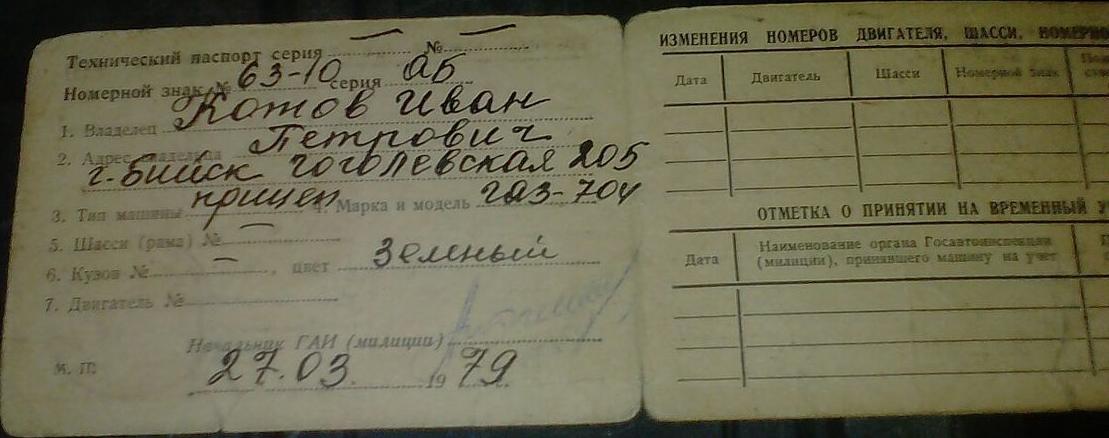 Технический паспорт серия — № —
Номерной знак № 63-10 серия АБ
1. Владелец Котов Иван
Петрович
2. Адрес владельца
г. Бийск Гоголевская 205
3. Тип машины прицеп 4. Марка и модель газ-704
5. Шасси (рама) № —
6. Кузов № — , цвет Зеленый
7. Двигатель №
Начальник ГАИ (милиции)
М. П. 27.03. 1979
ИЗМЕНЕНИЯ НОМЕРОВ ДВИГАТЕЛЯ, ШАССИ,
Дата Двигатель Шасси Номерной знак
ОТМЕТКА О ПРИНЯТИИ НА ВРЕМЕННЫЙ
Дата Наименование органа Госавтоинспекции
(милиции), принявшего машину на учет